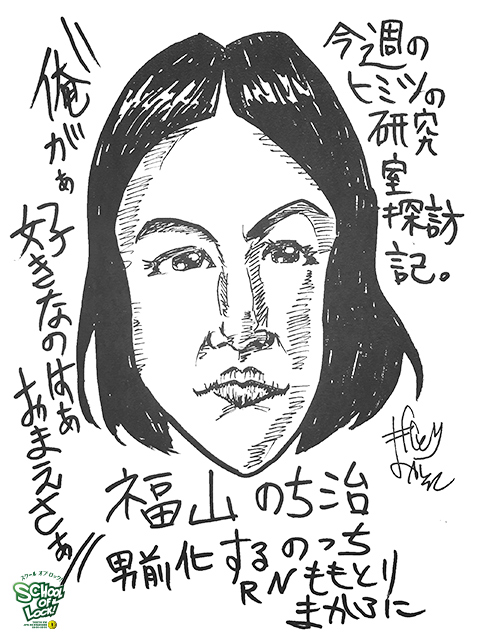 今週の
ヒミツの
研究
室探訪
記。
俺がぁ
好きなのはぁ
おまえさぁ
福山のち治
男前化するのっち
RNももとり
まかろに
スクール オブ ロック!
SCHOOL
OF
LOCK!